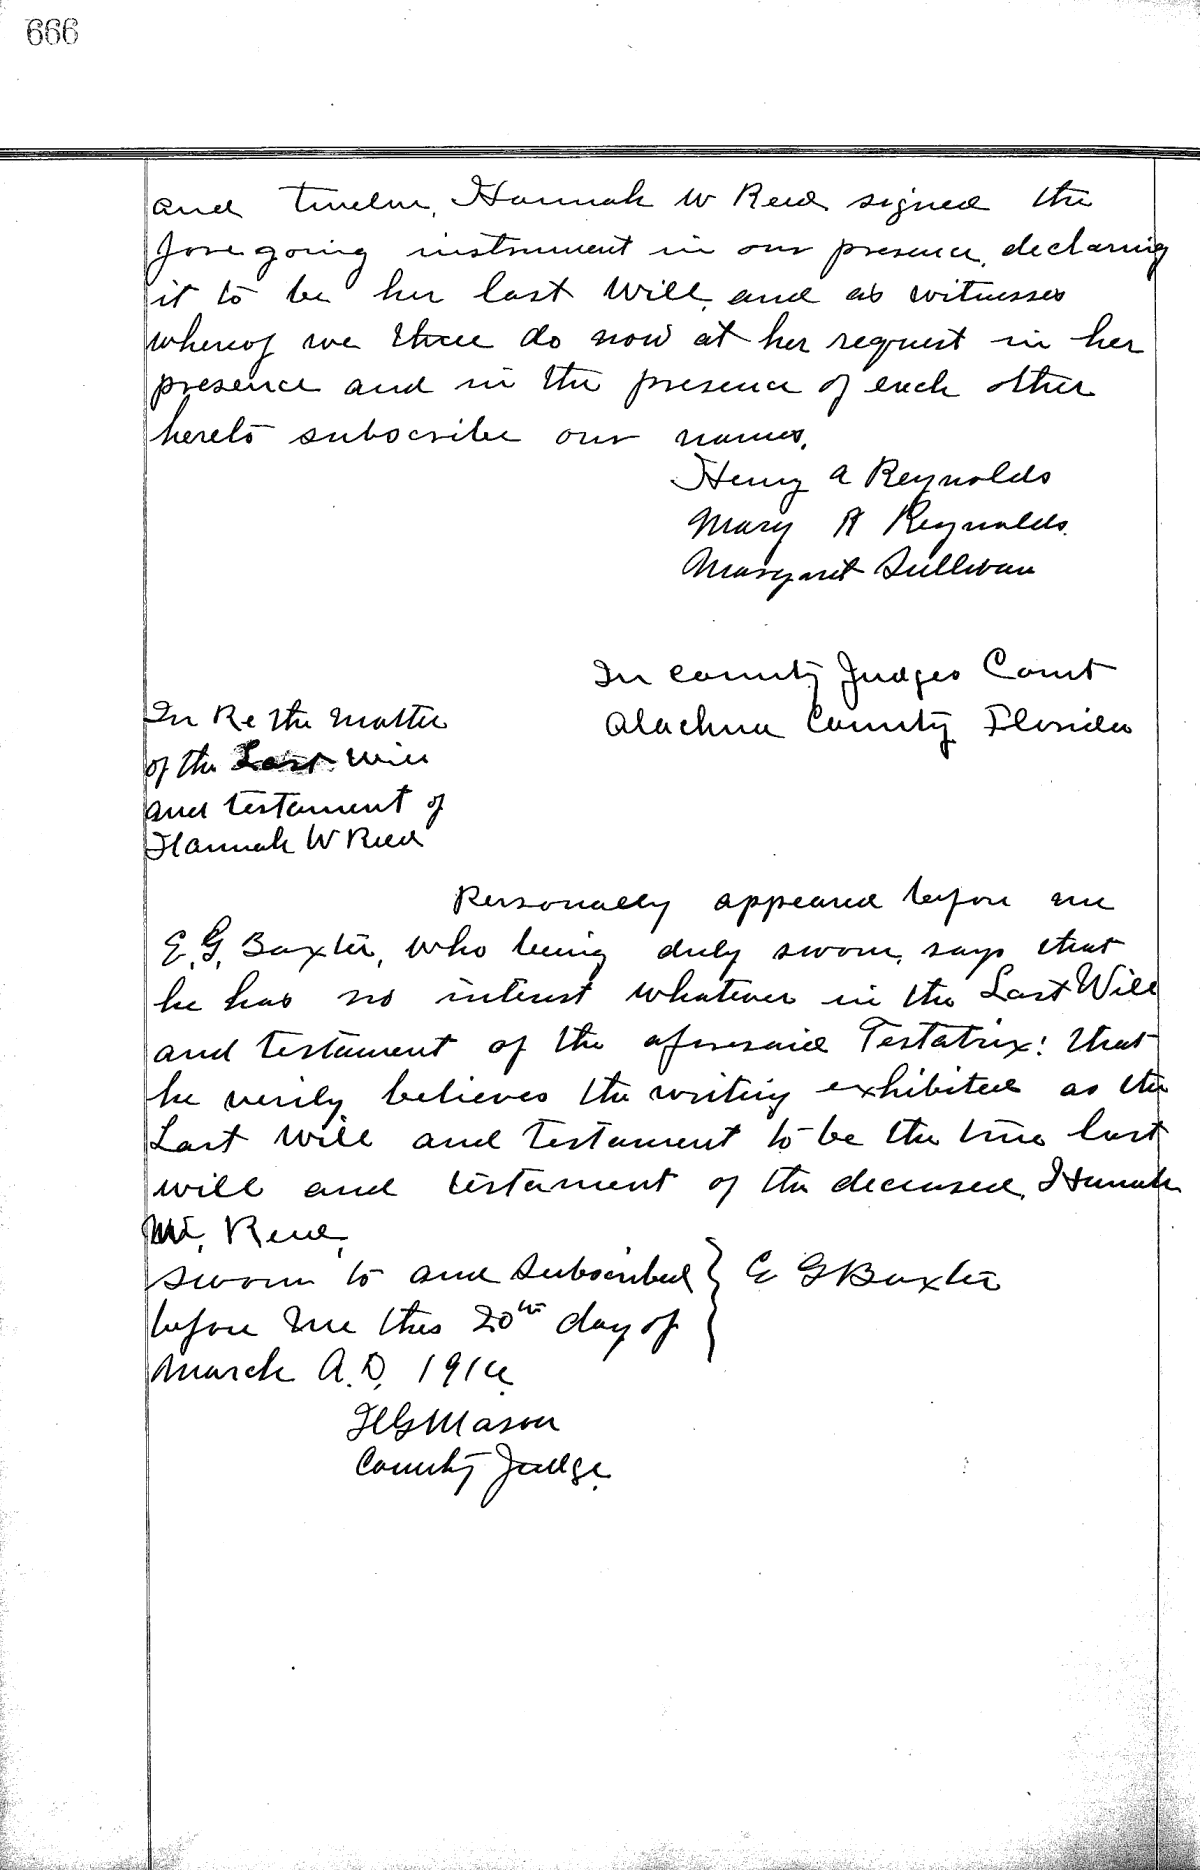 666
and twelve, Hannah W Reed signed the
foregoing instrument in our presence, declaring
it to be her last Will, and as witnesses
whereof we three do now at her request in her
presence and in the presence of each other
hereto subscribe our names.
Henry A Reynolds
Mary R Reynolds.
Margaret Sullivan
In County Judges Court
Alachua County Florida
In Re the matter
of the Last Will
and testament of
Hannah W Reed
Personally appeared before me
E. G. Baxter, who being duly sworn, says that
he has no interest whatever in the Last Will
and testament of the aforesaid Testatrix: that
he verily believes the writing exhibited as the
Last Will and testament to be the true last
will and testament of the deceased, Hannah
W. Reed.
Sworn to and subscribed } E G Baxter
before me this 20th day of
March A.D. 1914.
H G Mason
County Judge.